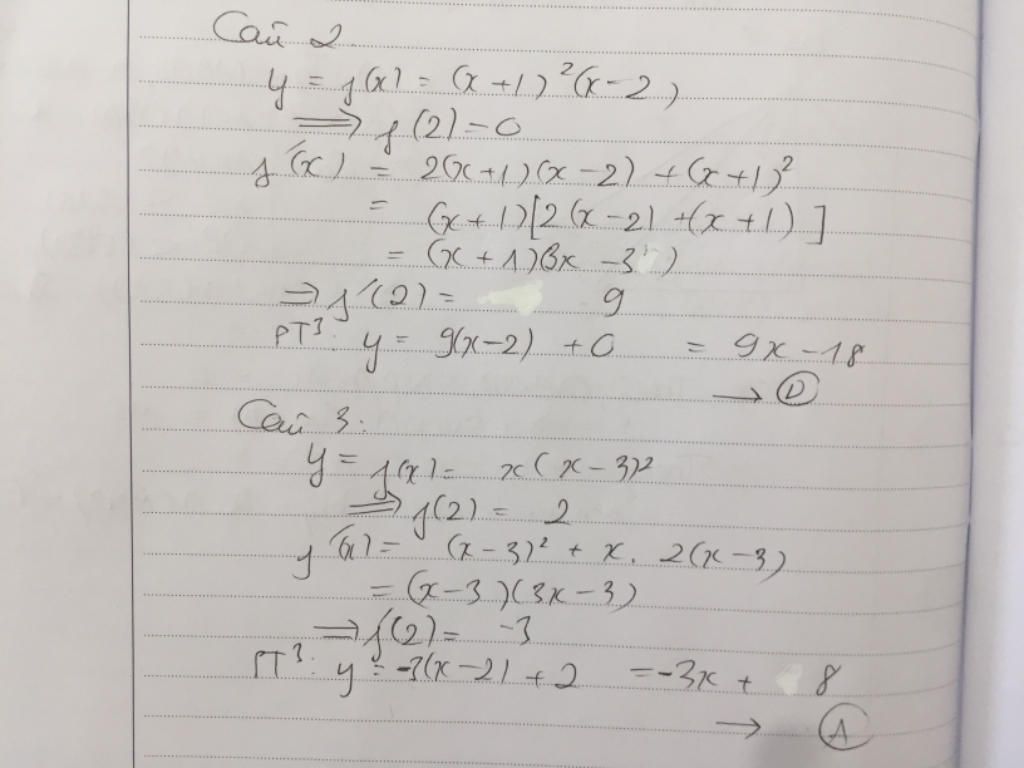 Câu 2.
y = f(x) = (x+1)²(x-2)
⟹ f(2)=0
f'(x) = 2(x+1)(x-2) + (x+1)²
= (x+1)[2(x-2) + (x+1)]
= (x+1)(3x-3)
⟹ f'(2) = 9
PT³: y = 9(x-2) + 0 = 9x - 18
→ D
Câu 3:
y = f(x) = x(x-3)²
⟹ f(2) = 2
f'(x) = (x-3)² + x. 2(x-3)
= (x-3)(3x-3)
⟹ f'(2) = -3
PT³: y = -3(x-2) + 2 = -3x + 8
→ A